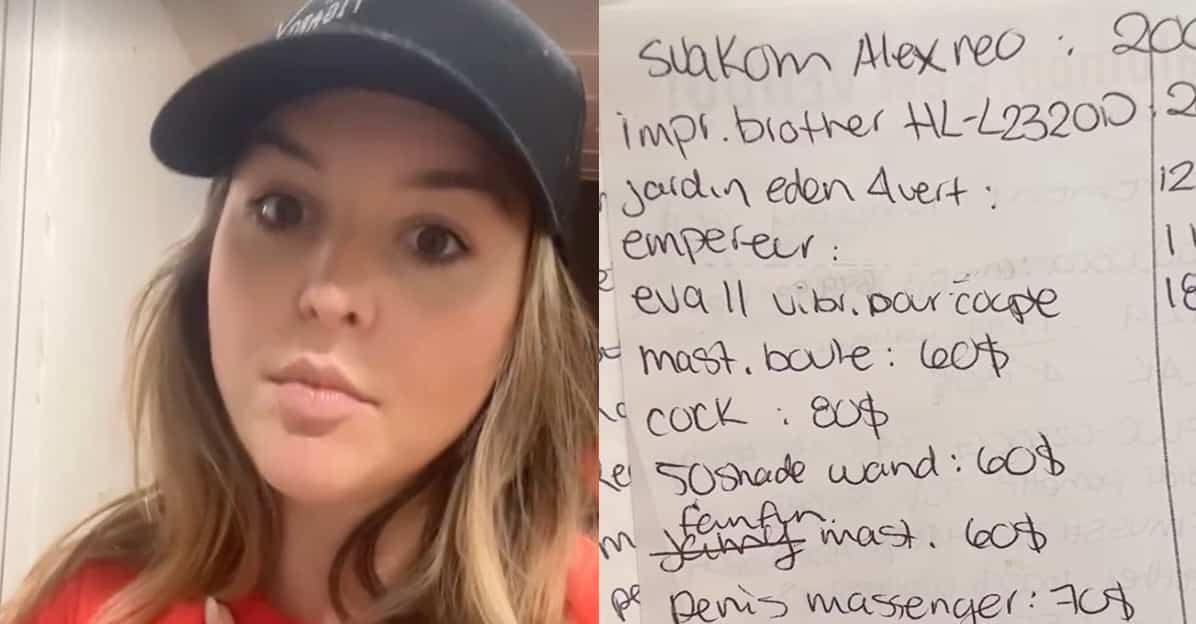 svakom Alex neo : 200
impr. brother HL-L2320D : 2
jardin eden 4vert : 12
empereur : 11
eva II vibr. pour couple 18
mast. boule : 60$
cock : 80$
50shade wand : 60$
femfyn
mast. 60$
penis massenger : 70$